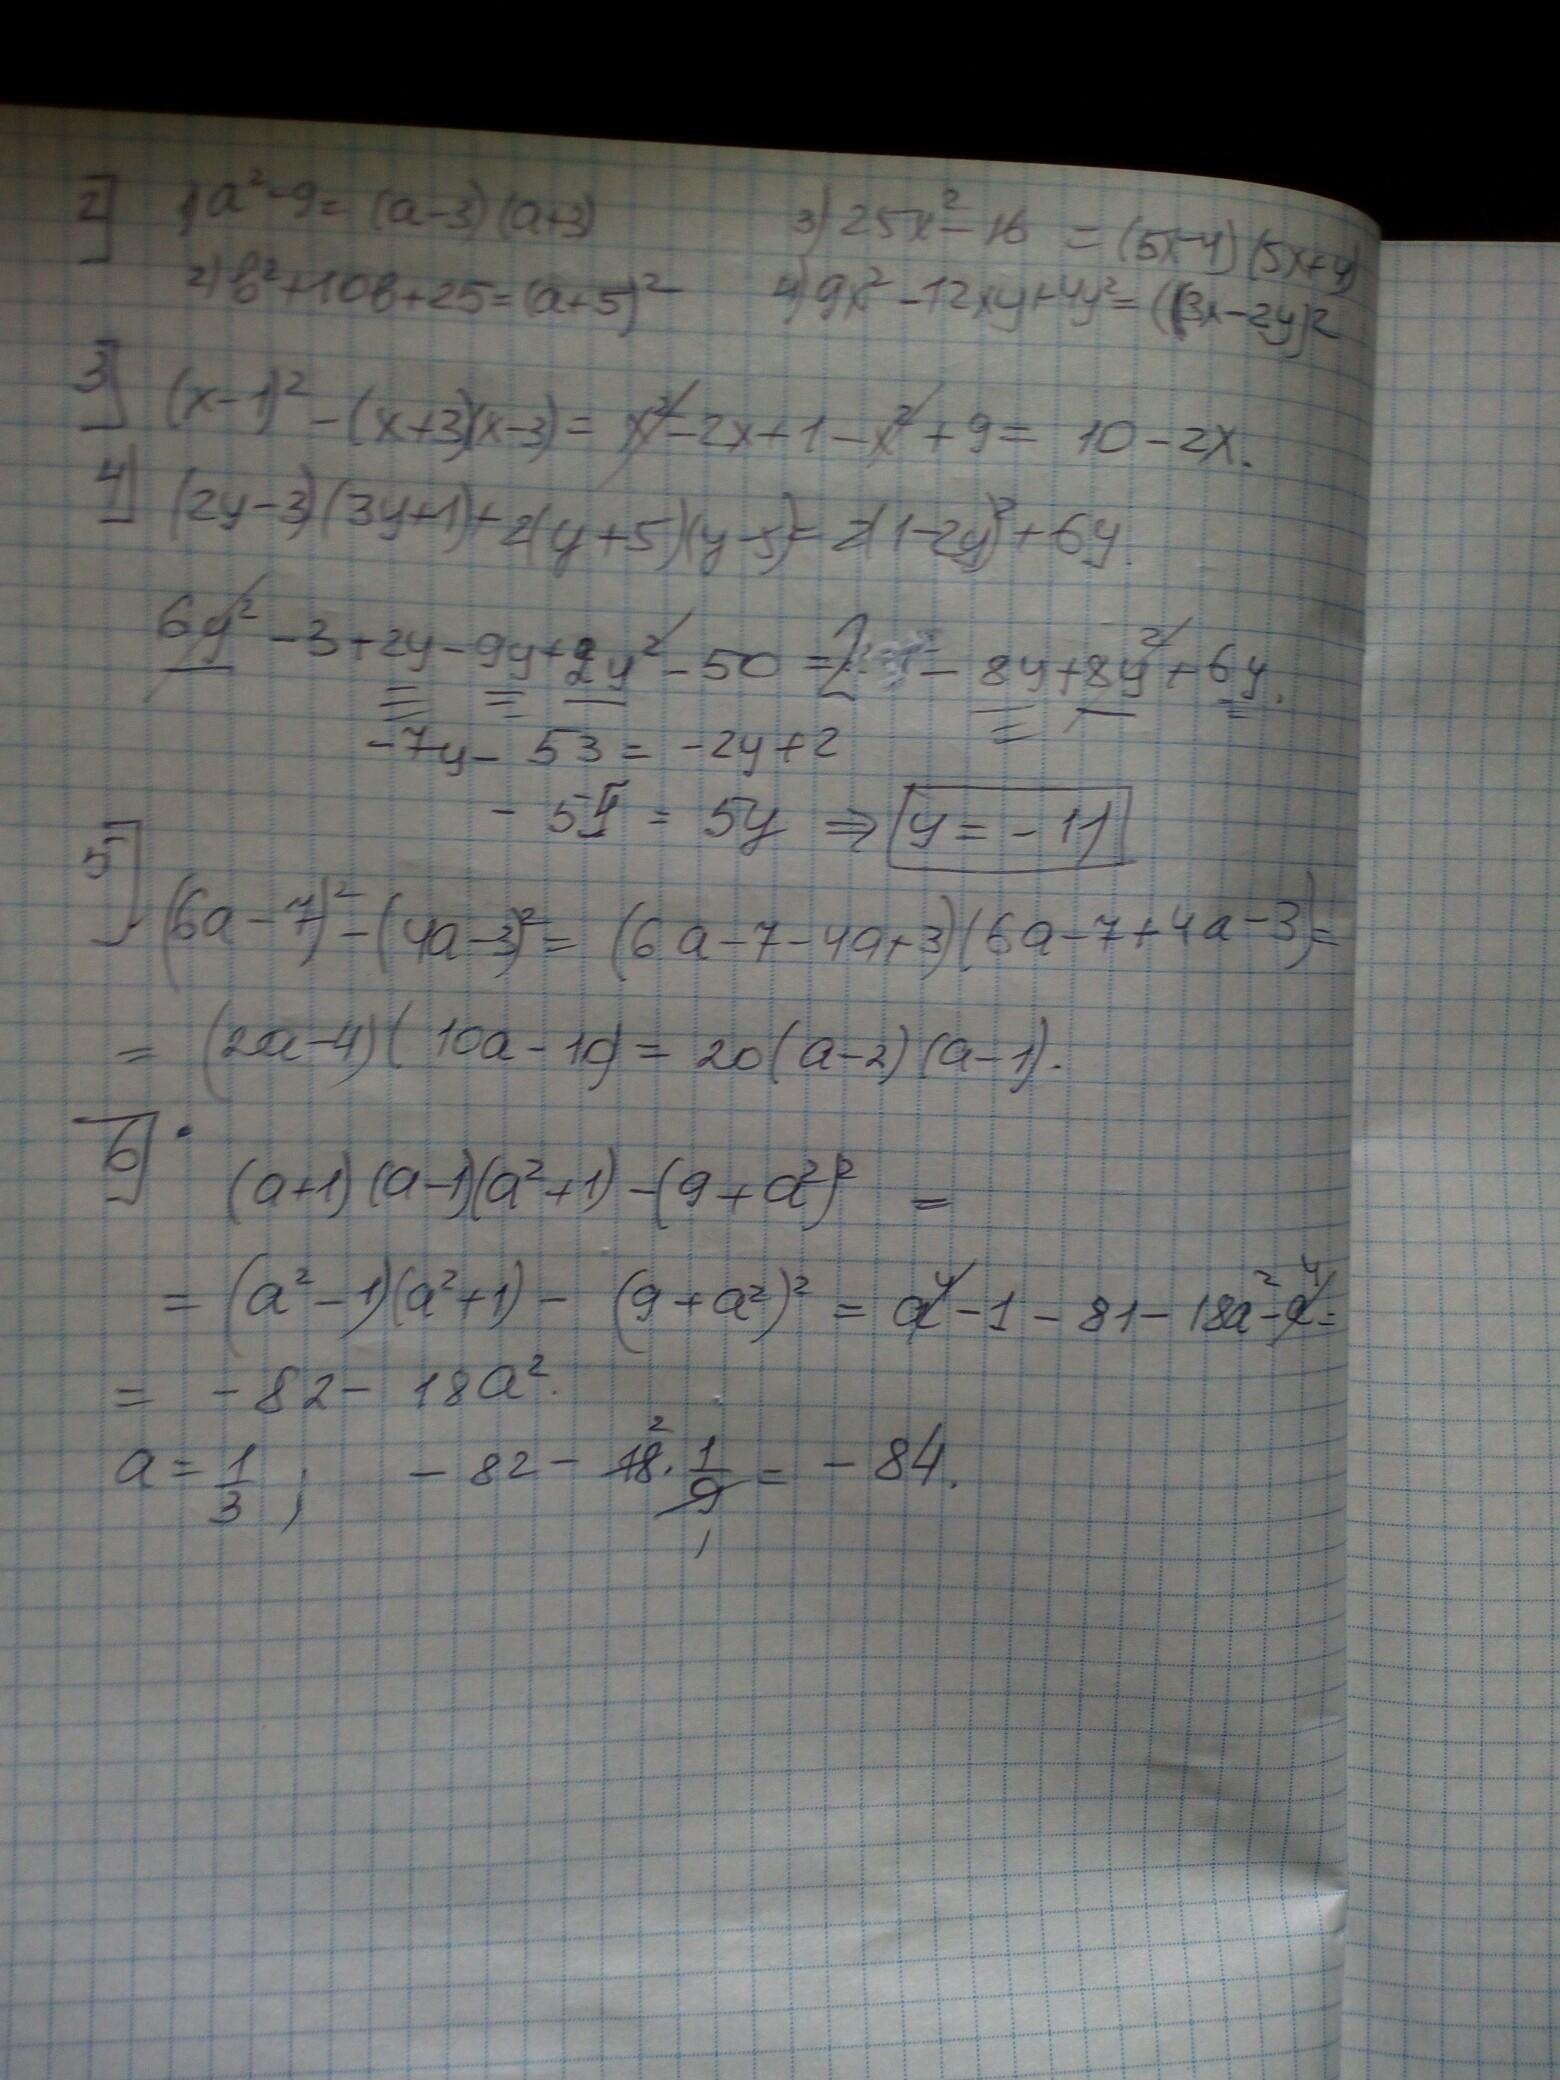 2] 1) a² - 9 = (a-3)(a+3) 3) 25x² - 16 = (5x-4)(5x+4)
2) b² + 10b + 25 = (a+5)² 4) 9x² - 12xy + 4y² = (3x-2y)²
3] (x-1)² - (x+3)(x-3) = x² - 2x + 1 - x² + 9 = 10 - 2x.
4] (2y-3)(3y+1) + 2(y+5)(y-5) = 2(1-2y)² + 6y.
6y² - 3 + 2y - 9y + 2y² - 50 = 2 - 8y + 8y² + 6y.
-7y - 53 = -2y + 2
- 55 = 5y ⇒ y = -11
5] (6a-7)² - (4a-3)² = (6a-7-4a+3)(6a-7+4a-3) =
= (2a-4)(10a-10) = 20(a-2)(a-1).
6] (a+1)(a-1)(a²+1) - (9+a²)² =
= (a²-1)(a²+1) - (9+a²)² = a⁴ - 1 - 81 - 18a² - a⁴ =
= -82 - 18a².
a = 1/3 ; - 82 - 18² · 1/9 = - 84.